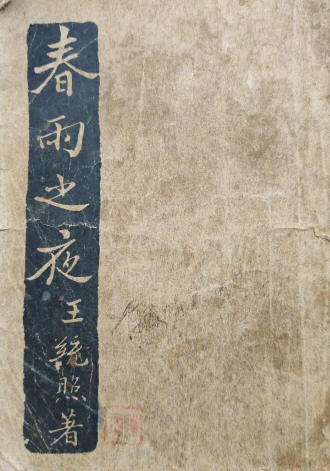 春雨之夜
王統照著